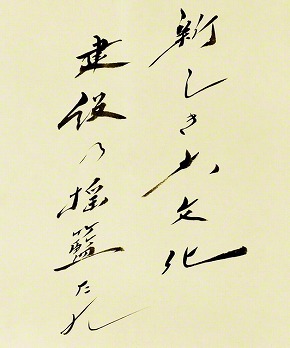 新しき大文化
建設の揺籃たれ